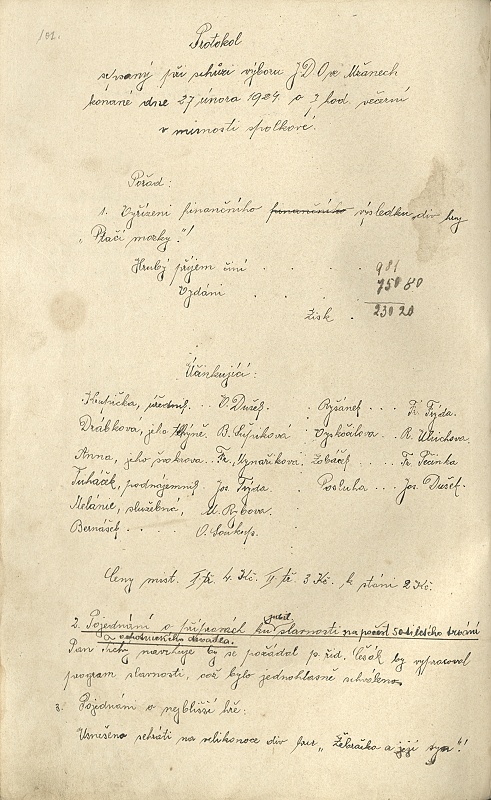 101.
Protokol
sepsaný při schůzi výboru J D O ve Mžanech
konané dne 27 února 1924. o 7 hod. večerní
v místnosti spolkové.
Pořad:
1. Vyřízení finančního finančního výsledku div hry
"Ptačí mozky"!
Hrubý příjem činí . . . . 981
Vydání . . . 750 80
Zisk . 230 20
Účinkující:
úředník . . V. Dušek. Ryšánek . . . Fr. Frýda.
Drábkova, jeho B. Vyskočilova . . R. Ulrichova.
Anna, jeho švakrova . . Fr. Žobáček . . . Fr.
Tuháček, podnajemník . Jos. Frýda. Posluha . . . Jos. Dušek.
Melánie, služebná, M. Rybova.
Bernášek . . . . O. Soukup.
Ceny míst. I tř. 4 Kč. II tř. 3 Kč. k stání 2 Kč.
2. Pojednání o přípravách ku jubil. slavnosti na počest 50ti letého trvání
ochotnického divadla.
Pan navrhuje by se požádal p. říd. Cesák by vypracoval
program slavnosti, což bylo jednohlasně schváleno.
3. Pojednání o nejbližší hře:
Usnešeno sehráti na velikonoce div "Žebračka a její syn"!